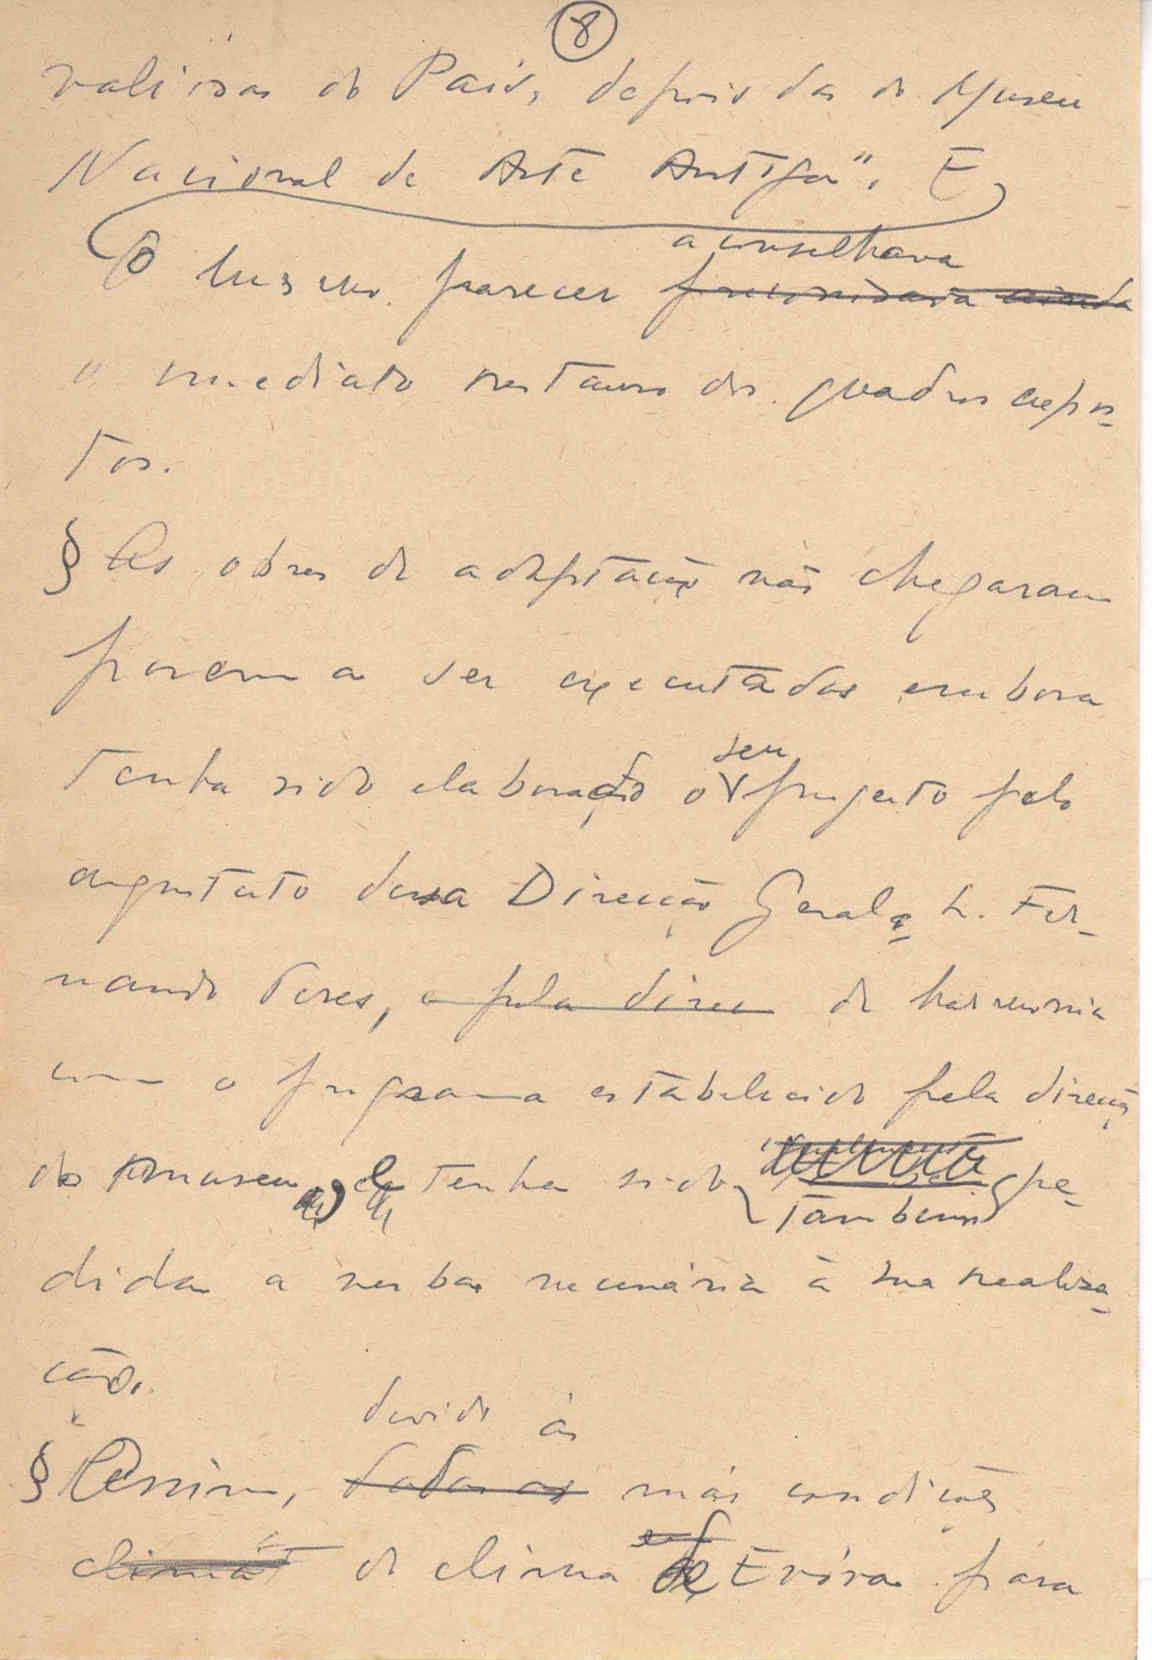 8
valiosas do País, depois das do Museu
Nacional de Arte Antiga". E
aconselhava
O mesmo parecer preconizava ainda
o imediato restauro dos quadros expos-
tos.
§ As obras de adaptação não chegaram
porem a ser executadas embora
seu
tenha sido elaborado o projecto pelo
arquitecto dessa Direcção Geral, Sr. Fer-
nando Peres, e pela direc de harmonia
com o programa estabelecido pela direcção
do museu, e tenha sido pe-
tambem
dida a verba necessária à sua realiza-
ção.
devido às
§ Assim, dadas as más condições
climát de clima de Evora para